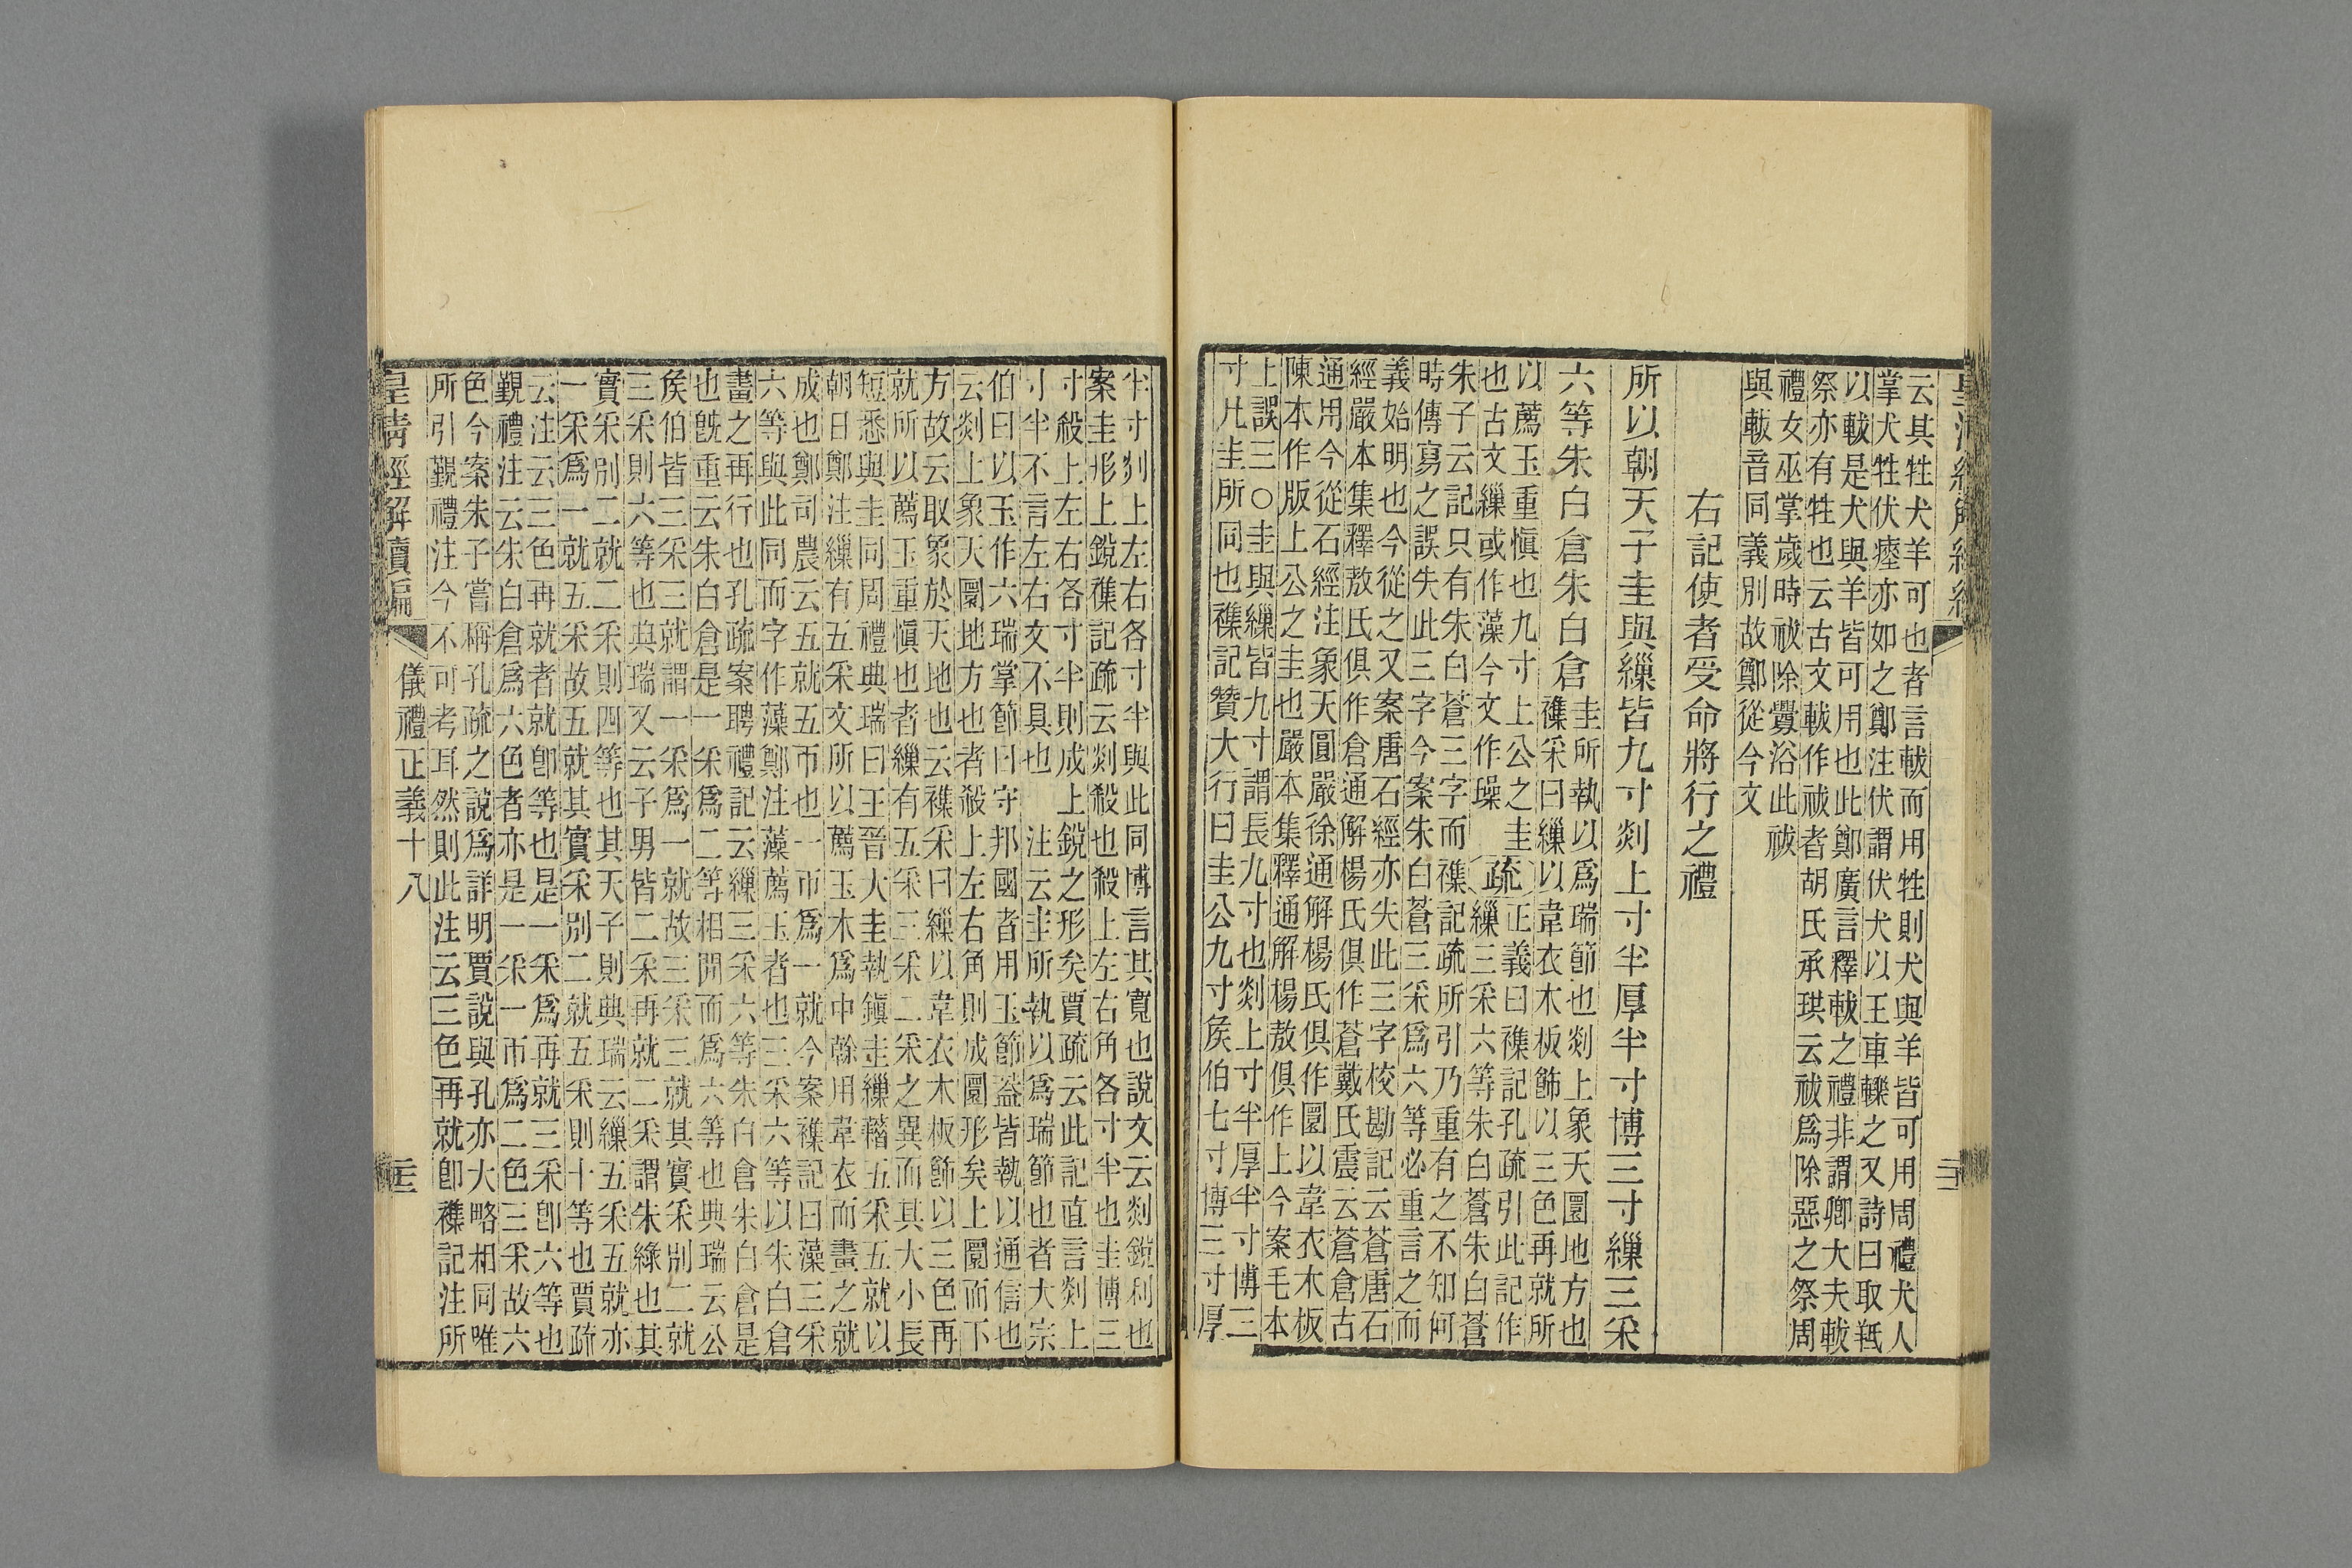 云其牲犬羊可也者言軷而用牲則犬與羊皆可用周禮犬人
掌犬牲伏瘞亦如之鄭注伏謂伏犬以王車轢之又詩曰取羝
以軷是犬與羊皆可用也此鄭廣言釋軷之禮非謂卿大夫軷
祭亦有牲也云古文軷作祓者胡氏承珙云祓爲除惡之祭周
禮女巫掌歲時祓除釁浴此祓
與軷音同義別故鄭從今文
右記使者受命將行之禮
所以朝天子圭與繅皆九寸剡上寸半厚半寸博三寸繅三采
六等朱白倉朱白倉
圭所執以爲瑞節也剡上象天圜地方也
襍采曰繅以韋衣木板飾以三色再就所
以薦玉重愼也九寸上公之圭
也古文繅或作藻今文作璪
疏
正義曰襍記孔疏引此記作
繅三采六等朱白蒼朱白蒼
朱子云記只有朱白蒼三字而襍記疏所引乃重有之不知何
時傳寫之誤失此三字今案朱白蒼三采爲六等必重言之而
義始明也今從之又案唐石經亦失此三字校勘記云蒼唐石
經嚴本集釋敖氏俱作倉通解楊氏俱作蒼戴氏震云蒼倉古
通用今從石經注象天圓嚴徐通解楊氏俱作圜以韋衣木板
陳本作版上公之圭也嚴本集釋通解楊敖俱作上今案毛本
上誤三○圭與繅皆九寸謂長九寸也剡上寸半厚半寸博三
寸凡圭所同也襍記贊大行曰圭公九寸矦伯七寸博三寸厚
半寸剡上左右各寸半與此同博言其寬也說文云剡銳利也
案圭形上銳襍記疏云剡殺也殺上左右角各寸半也圭博三
寸殺上左右各寸半則成上銳之形矣賈疏云此記直言剡上
寸半不言左右文不具也注云圭所執以爲瑞節也者大宗
伯曰以玉作六瑞掌節曰守邦國者用玉節葢皆執以通信也
云剡上象天圜地方也者殺上左右角則成圜形矣上圜而下
方故云取象於天地也云襍采曰繅以韋衣木板飾以三色再
就所以薦玉重愼也者繅有五采三采二采之異而其大小長
短悉與圭同周禮典瑞曰王晉大圭執鎭圭繅藉五采五就以
朝日鄭注繅有五采文所以薦玉木爲中榦用韋衣而畫之就
成也鄭司農云五就五帀也一帀爲一就今案襍記曰藻三采
六等與此同而字作藻鄭注藻薦玉者也三采六等以朱白倉
畫之再行也孔疏案聘禮記云繅三采六等朱白倉朱白倉是
也旣重云朱白倉是一采爲二等相閒而爲六等也典瑞云公
矦伯皆三采三就謂一采爲一就故三采三就其實采別二就
三采則六等也典瑞又云子男皆二采再就二采謂朱綠也其
實采別二就二采則四等也其天子則典瑞云繅五采五就亦
一采爲一就五采故五就其實采別二就五采則十等也賈疏
云注云三色再就者就卽等也是一采爲再就三采卽六等也
覲禮注云朱白倉爲六色者亦是一采一帀爲二色三采故六
色今案朱子嘗稱孔疏之說爲詳明賈說與孔亦大略相同唯
所引覲禮注今不可考耳然則此注云三色再就卽襍記注所
皇淸經解續編
儀禮正義十八